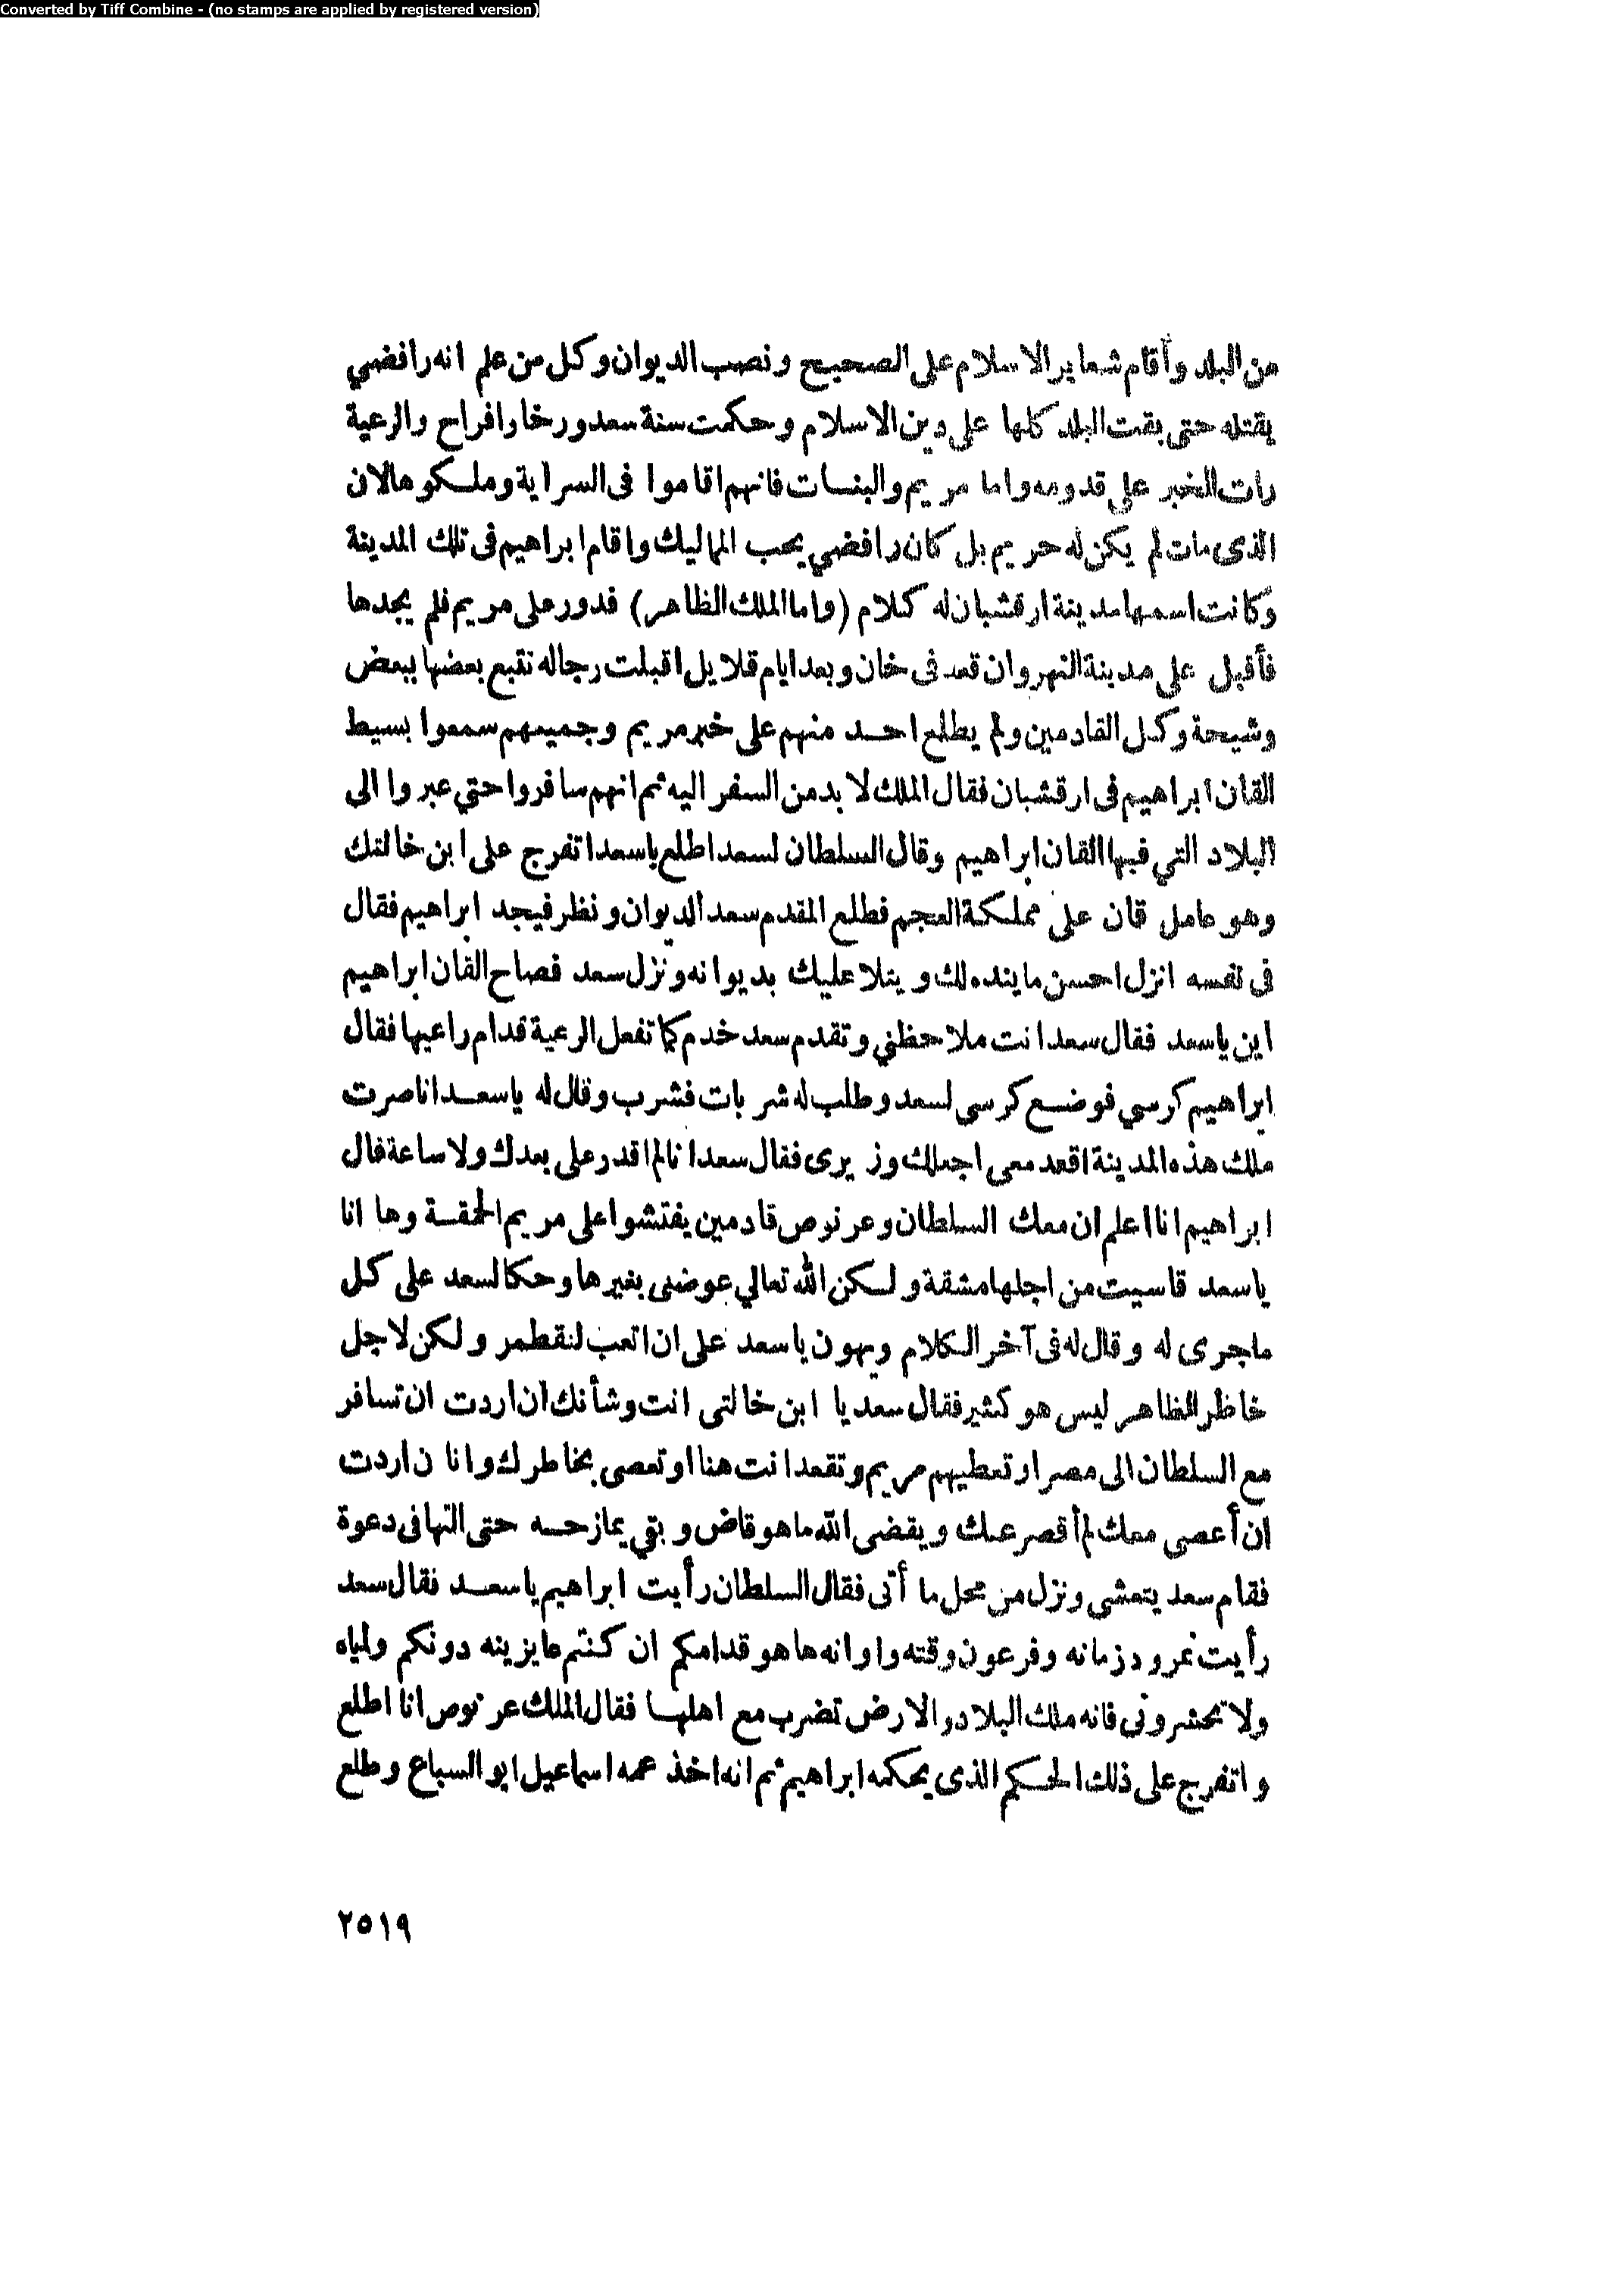 Converted by Tiff Combine - (no stamps are applied by registered version)
من البلد وأقام شعاير الاسلام على الصحيح ونصب الديوان وكل من علم انه رافضي
يقتله حتى بقت البلد كلها على دين الاسلام وحكمت سنة سعد ورخا وافراح والرعية
رات الخير على قدومه واما مريم والبنات فانهم اقاموا فى السراية وملكوها لان
الذى مات لم يكن له حريم بل كان رافضي يحب المماليك واقام ابراهيم فى تلك المدينة
وكانت اسمها مدينة ارقشبان له كلام (واما الملك الظاهر) فدور على مريم فلم يجدها
فأقبل على مدينة النهروان قعد فى خان وبعد ايام قلايل اقبلت رجاله تتبع بعضها ببعض
وشيحة وكل القادمين ولم يطلع احد منهم على خبر مريم وجميعهم سمعوا بسيط
القان ابراهيم فى ارقشبان فقال الملك لا بد من السفر اليه ثم انهم سافروا حتي عبروا الى
البلاد التي فيها القان ابراهيم وقال السلطان لسعد اطلع ياسعد اتفرج على ابن خالتك
وهو عامل قان على مملكة العجم فطلع المقدم سعد الديوان ونظر فيجد ابراهيم فقال
فى نفسه انزل احسن ما ينده لك ويتلا عليك بديوانه ونزل سعد فصاح القان ابراهيم
اين ياسعد فقال سعد انت ملاحظني وتقدم سعد خدم كما تفعل الرعية قدام راعيها فقال
ابراهيم كرسي فوضع كرسى لسعد وطلب له شربات فشرب وقال له ياسعد انا صرت
ملك هذه المدينة اقعد معى اجعلك وزيرى فقال سعد انا لم اقدر على بعدك ولا ساعة قال
ابراهيم انا اعلم ان معك السلطان وعرنوص قادمين يفتشوا على مريم الحمقة وها انا
ياسعد قاسيت من اجلها مشقة ولكن الله تعالي عوضنى بغيرها وحكا لسعد على كل
ماجرى له وقال له فى آخر الكلام ويهون ياسعد على ان اتعب لنقطمر ولكن لاجل
خاظر الظاهر ليس هو كثير فقال سعد يا ابن خالتى انت وشأنك ان اردت ان تسافر
مع السلطان الى مصر او تعطيهم مريم وتقعد انت هنا او تعصى بخاطرك وانا ن اردت
ان أعصى معك لم أقصر عنك ويقضى الله ما هو قاض وبقي يمازحه حتى التها فى دعوة
فقام سعد يتمشى ونزل من محل ما أتى فقال السلطان رأيت ابراهيم ياسعد فقال سعد
رأيت نمرود زمانه وفرعون وقته واوانه ها هو قدامكم ان كنتم عايزينه دونكم واياه
ولا تحشرونى فانه ملك البلاد والارض تضرب مع اهلها فقال الملك عرنوص انا اطلع
واتفرج على ذلك الحكم الذى يحكمه ابراهيم ثم انه اخذ عمه اسماعيل ابو السباع وطلع
٢٥١٩